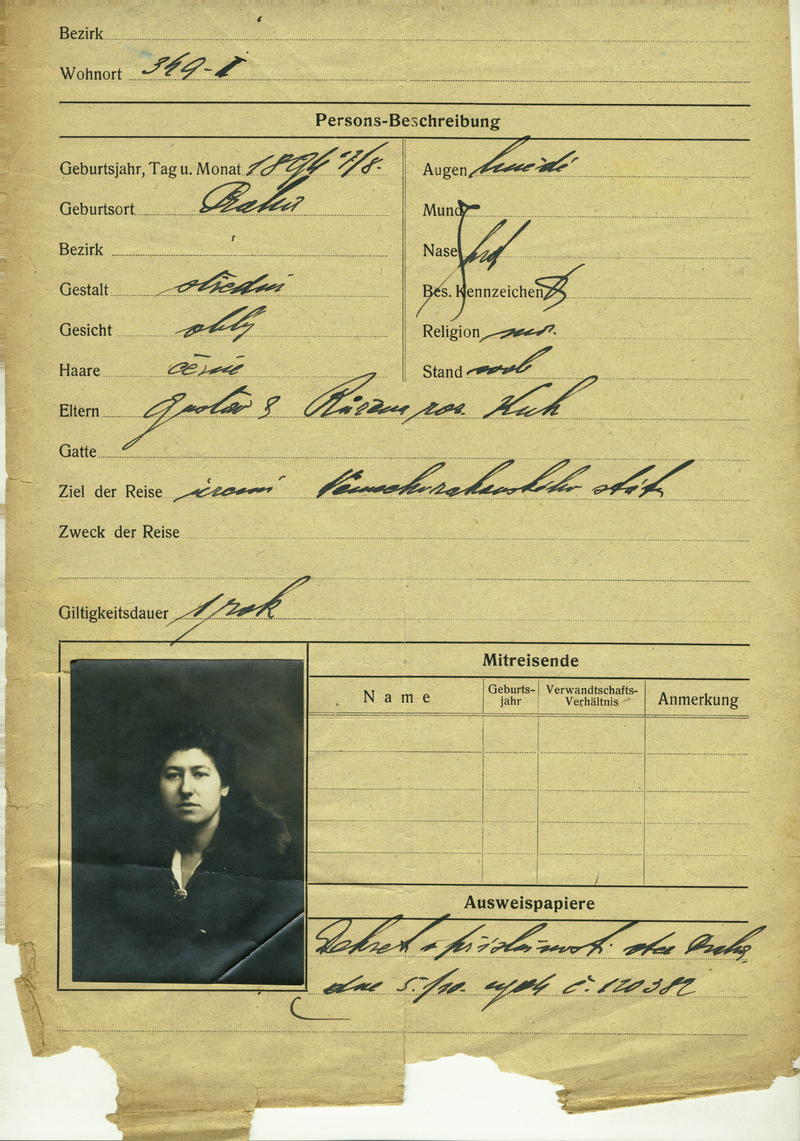 Bezirk
Wohnort 349-II
Persons-Beschreibung
Geburtsjahr, Tag u. Monat 1894 17/8.
Geburtsort Praha
Bezirk
Gestalt střední
Gesicht oblý
Haare černé
Augen hnědé
Mund
Nase
Bes. Kennzeichen
Religion
Stand svob
Eltern Gustav & Růžena roz. Kuh
Gatte
Ziel der Reise území Německorakouského státu
Zweck der Reise
Giltigkeitsdauer 1 rok
Mitreisende
Name
Geburts-jahr
Verwandtschafts-Verhältnis
Anmerkung
Ausweispapiere
Dekret o příslušnosti obce Prahy
dne 5./10. č. 120382